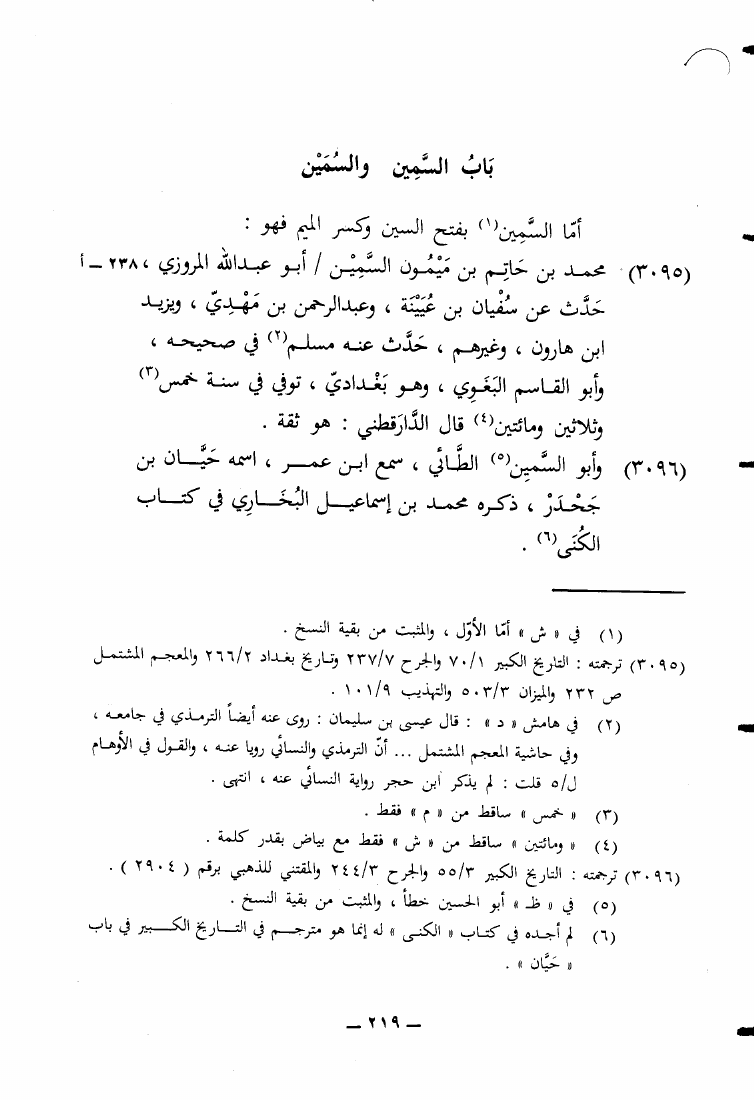 بَابُ السَّمِين والسُّمَيْن
أمّا السَّمِين(١) بفتح السين وكسر الميم فهو :
(٣٠٩٥) محمد بن حَاتِم بن مَيْمُون السَّمِيْن / أبو عبدالله المروزي ، ٢٣٨ ــ أ
حَدَّث عن سُفْيان بن عُيَيْنَة ، وعبدالرحمن بن مَهْدِيّ ، ويزيد
ابن هارون ، وغيرهم ، حَدَّث عنه مسلم(٢) في صحيحه ،
وأبو القاسم البَغَوِي ، وهو بَغْداديّ ، توفي في سنة خمس(٣)
وثلاثين ومائتين(٤) قال الدَّارَقطني : هو ثقة .
(٣٠٩٦) وأبو السَّمِين(٥) الطَّائي ، سمع ابن عمر ، اسمه حَيَّان بن
جَحْدَرْ ، ذكره محمد بن إسماعيل البُخَارِي في كتاب
الكُنَى(٦) .
(١) في « ش » أمّا الأوّل ، والمثبت من بقية النسخ .
(٣٠٩٥) ترجمته : التاريخ الكبير ٧٠/١ والجرح ٢٣٧/٧ وتاريخ بغداد ٢٦٦/٢ والمعجم المشتمل
ص ٢٣٢ والميزان ٥٠٣/٣ والتهذيب ١٠١/٩ .
(٢) في هامش « د » : قال عيسى بن سليمان : روى عنه أيضاً الترمذي في جامعه ،
وفي حاشية المعجم المشتمل ... أنّ الترمذي والنسائي رويا عنه ، والقول في الأوهام
ل/٥ قلت : لم يذكر ابن حجر رواية النسائي عنه ، انتهى .
(٣) « خمس » ساقط من « م » فقط .
(٤) « ومائتين » ساقط من « ش » فقط مع بياض بقدر كلمة .
(٣٠٩٦) ترجمته : التاريخ الكبير ٥٥/٣ والجرح ٢٤٤/٣ والمقتني للذهبي برقم ( ٢٩٠٤ ) .
(٥) في « ظ » أبو الحسين خطأ ، والمثبت من بقية النسخ .
(٦) لم أجده في كتاب « الكنى » له إنما هو مترجم في التاريخ الكبير في باب
« حَيَّان » .
ــ ٢١٩ ــ